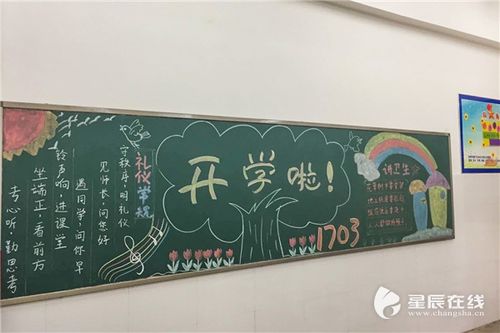 开学啦!
1703
礼仪常规
守秩序,明礼仪
见师长,问您好
遇同学,问你早
铃声响 进课堂
坐端正,看前方
专心听,勤思考
讲卫生
星辰在线
www.changsha.cn